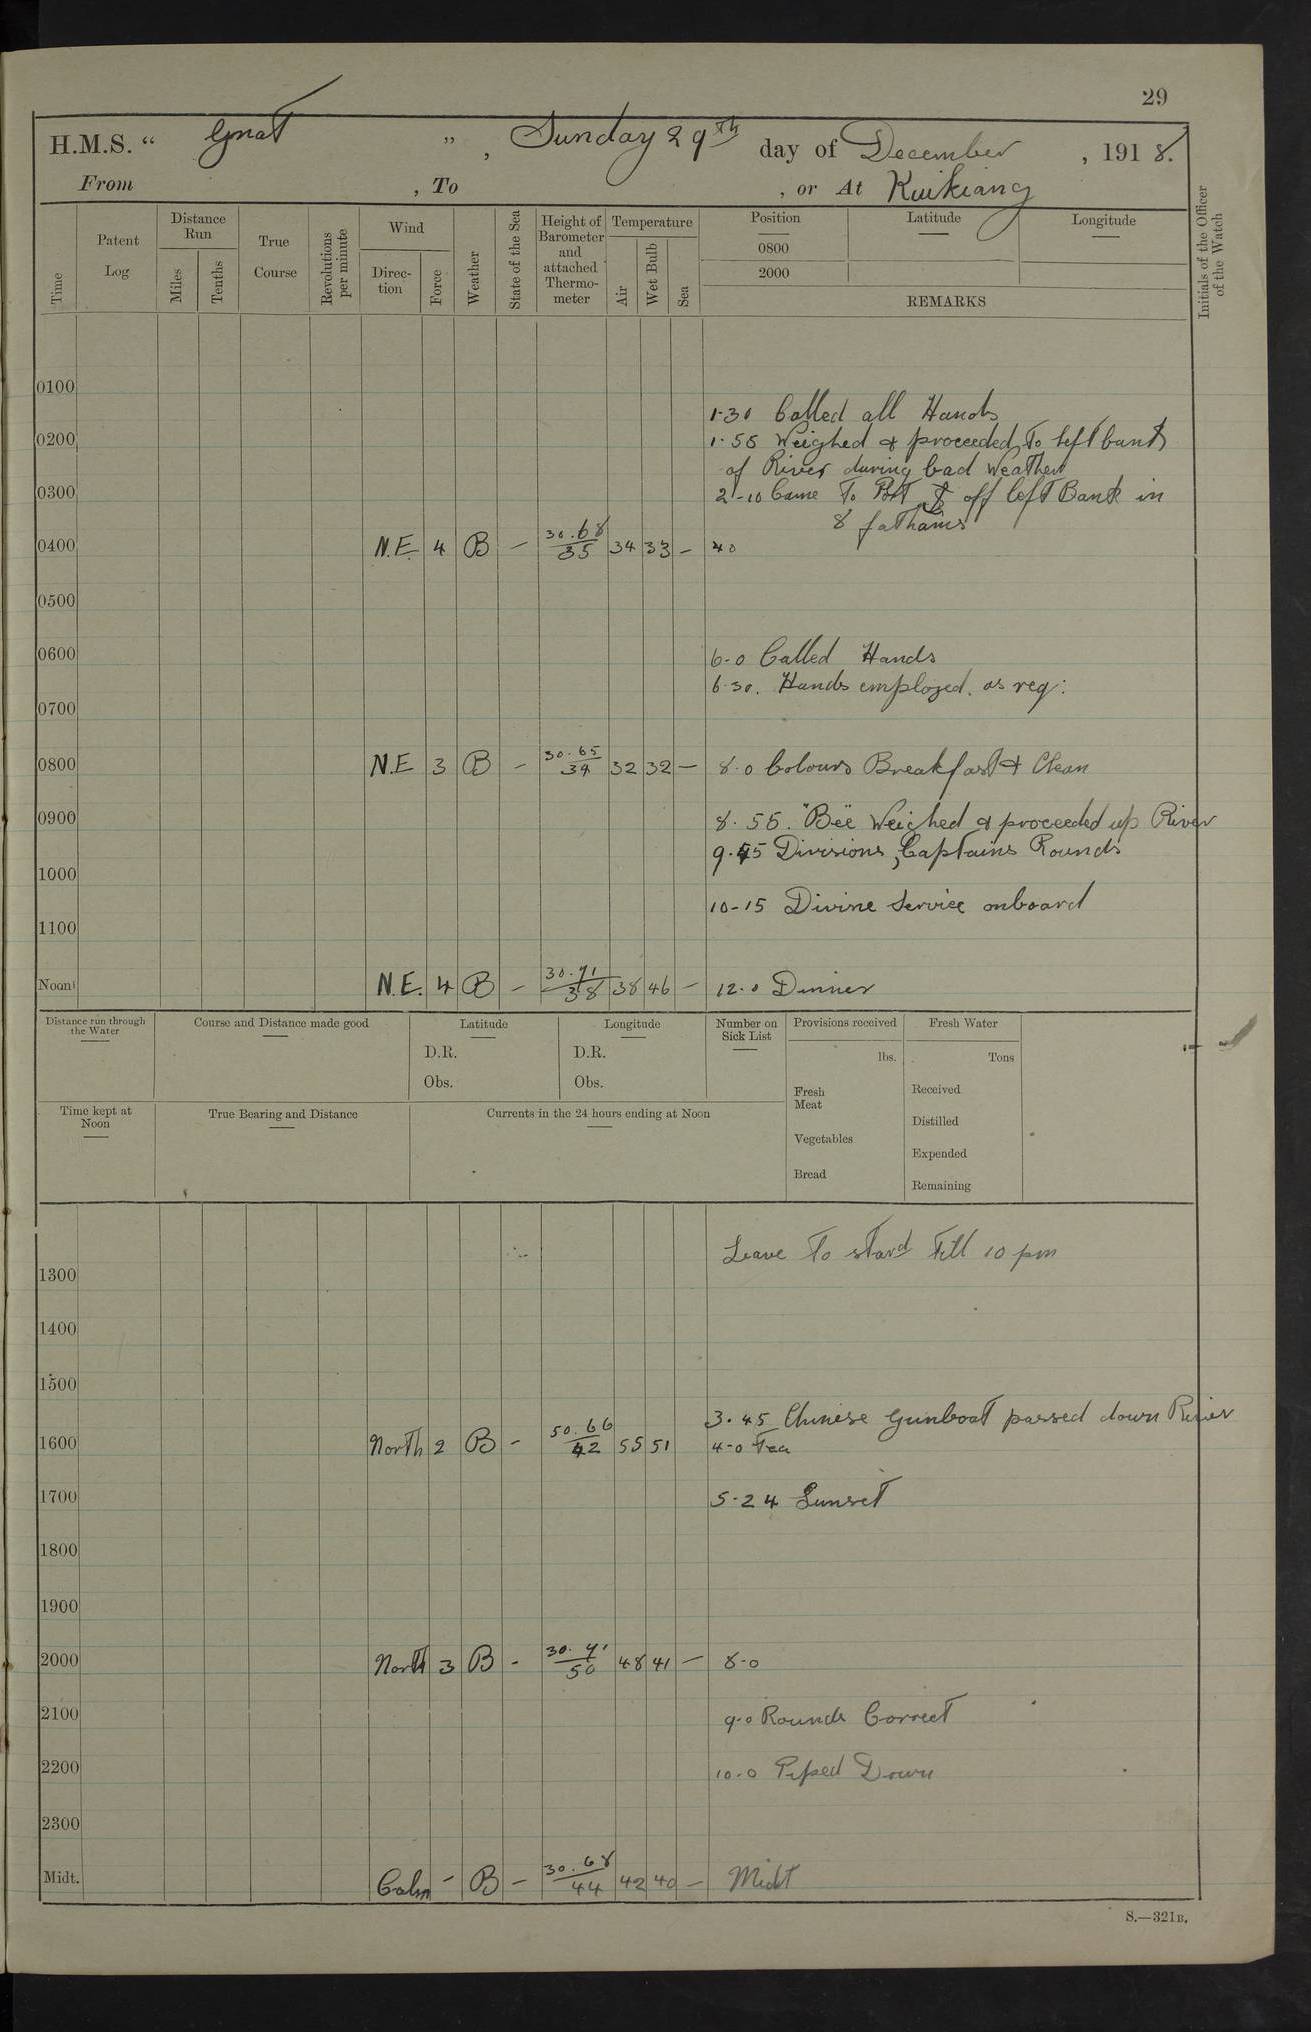 29
H.M.S. " Gnat ", Sunday 29th day of December, 1918.
From , To , or At Kuikiang
Time
Patent Log
Distance Run
Miles
Tenths
True Course
Revolutions per minute
Wind
Direction
Force
Weather
State of the Sea
Height of Barometer and attached Thermometer
Temperature
Air
Wet Bulb
Sea
Position
Latitude
Longitude
0800
2000
REMARKS
Initials of the Officer of the Watch
0100
1-30 Called all Hands
0200 1-55 Weighed & proceeded to left bank
of River during bad Weather
0300 2-10 Came To Port ⚓ off left Bank in
8 fathams
0400 N.E. 4 B – 30.68/35 34 33 – 40
0500
0600 6-0 Called Hands
6-30. Hands employed. as req:
0700
0800 N.E 3 B – 30.65/34 32 32 – 8-0 Colours Breakfast & Clean
0900 8.55. "Bee" Weighed & proceeded up River
9.45 Divisions, Captains Rounds
1000
10-15 Divine Service onboard
1100
Noon N.E. 4 B – 30.71/38 38 46 – 12.0 Dinner
Distance run through the Water
Course and Distance made good
Latitude
D.R.
Obs.
Longitude
D.R.
Obs.
Number on Sick List
Provisions received
lbs.
Fresh Meat
Vegetables
Bread
Fresh Water
Tons
Received
Distilled
Expended
Remaining
Time kept at Noon
True Bearing and Distance
Currents in the 24 hours ending at Noon
Leave to stard till 10 pm
1300
1400
1500
3.45 Chinese Gunboat passed down River
1600 North 2 B – 50.66/42 55 51 4-0 Tea
1700 5-24 Sunset
1800
1900
2000 North 3 B - 30.71/50 48 41 – 8-0
2100 9-0 Rounds Correct
2200 10-0 Piped Down
2300
Midt. Calm – B – 30.68/44 42 40 – Midt
S.—321B.